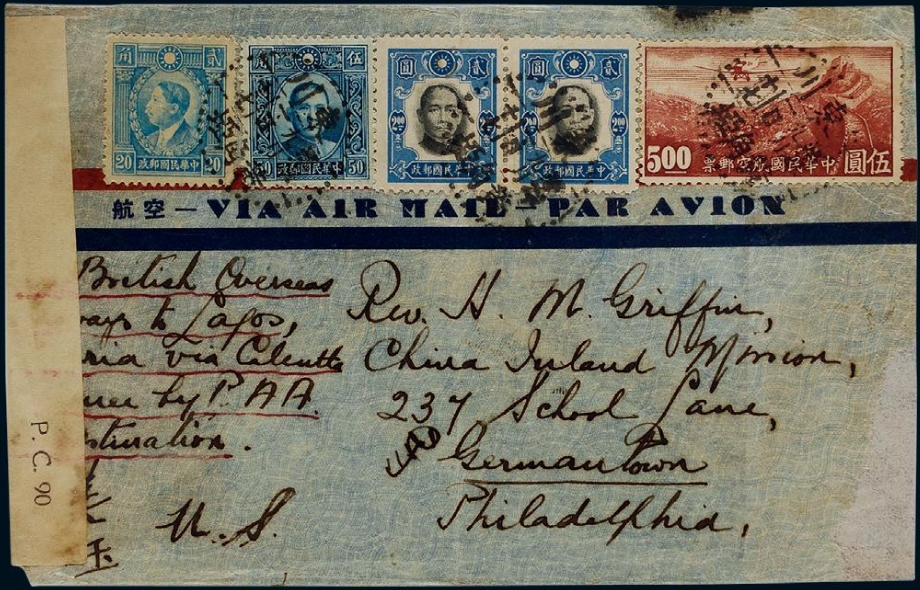 角 貳
20 中華民國郵政 20
伍
50 中華民國郵政 50
圓 貳
2 00 2 00
中華民國郵政
圓 貳
2 00 2 00
中華民國郵政
5.00 票郵空航國民華中 圓伍
航空 — VIA AIR MAIL PAR AVION
British Overseas
ways to Lagos,
ria via Calcutta
nce by P.A.A.
stination.
Rev. H. M. Griffin,
China Inland Mission,
237 School Lane,
Germantown
Philadelphia,
U.S.
玉
P. C. 90